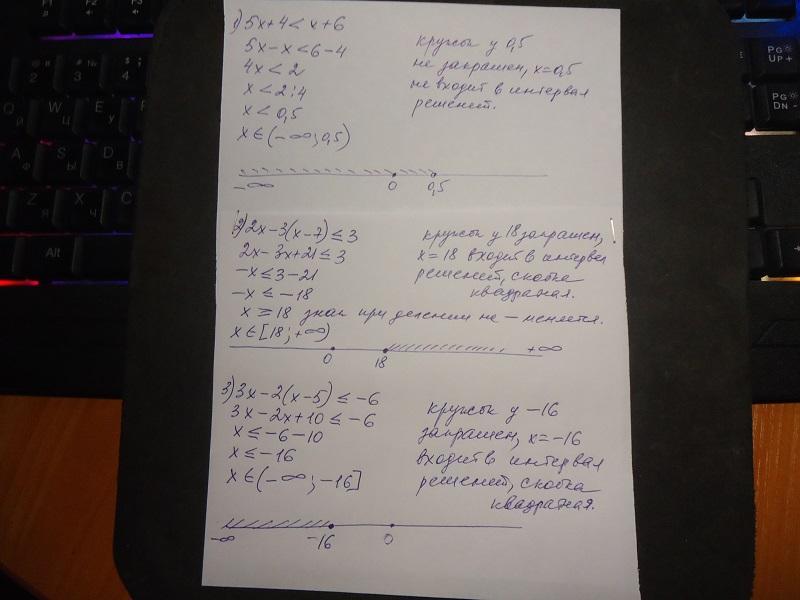 1) 5x+4 < x+6
5x-x < 6-4
4x < 2
x < 2:4
x < 0,5
x ∈ (-∞; 0,5)
кружок у 0,5
не закрашен, x=0,5
не входит в интервал
решений.
-∞ 0 0,5
2) 2x-3(x-7) ≤ 3
2x-3x+21 ≤ 3
-x ≤ 3-21
-x ≤ -18
x ≥ 18 знак при делении на - меняется.
x ∈ [18; +∞)
кружок у 18 закрашен,
x=18 входит в интервал
решений, скобка
квадратная.
0 18 +∞
3) 3x-2(x-5) ≤ -6
3x-2x+10 ≤ -6
x ≤ -6-10
x ≤ -16
x ∈ (-∞; -16]
кружок у -16
закрашен, x=-16
входит в интервал
решений, скобка
квадратная.
-∞ -16 0
Alt
PgUp
PgDn -